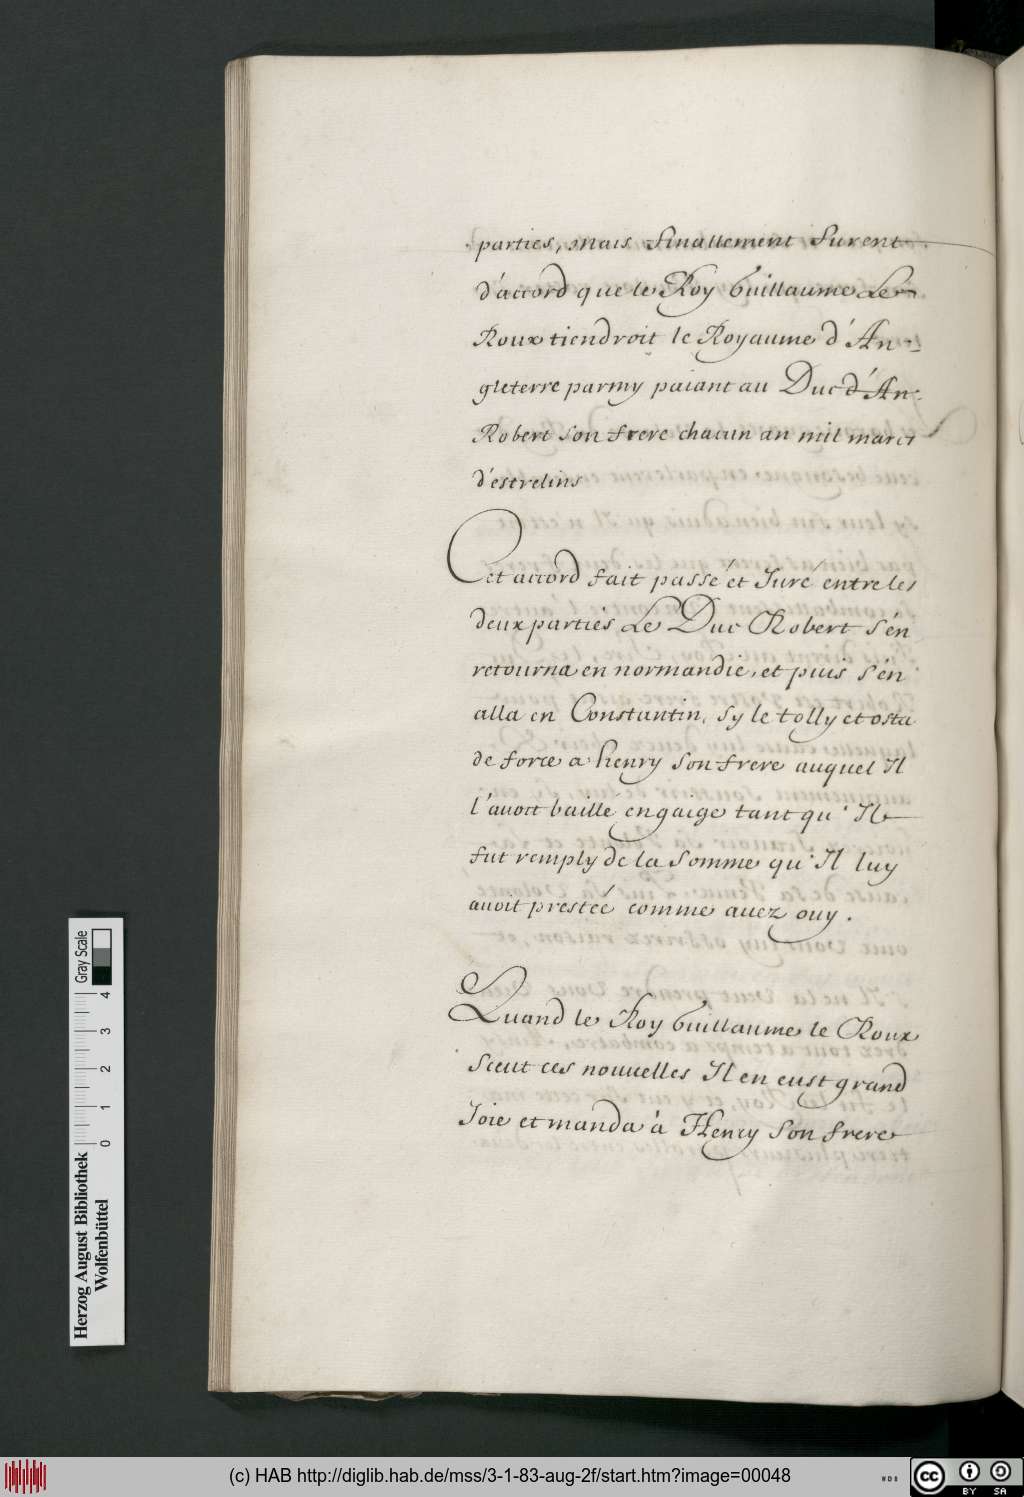 parties, mais finallement furent
d'accord que le Roy Guillaume Le
Roux tiendroit le Royaume d'An-
gleterre parmy paiant au Duc d'An.
Robert son frere chacun an mil marcs
d'estrelins
Cet accord fait passé et Juré entre les
deux parties Le Duc Robert s'én
retourna en normandie, et puis s'én
alla en Constantin, sy le tolly et osta
de force a henry son frere auquel Il
l'avoit baillé en gaige tant qu'Il
fut remply de la somme qu'Il luy
auoit prestée comme auez ouy.
Quand le Roy Guillaume le Roux
sceut ces nouuelles Il en eust grand
Joie et manda à Henry son frere
Herzog August Bibliothek
Wolfenbüttel
0 1 2 3 4
Gray Scale
(c) HAB http://diglib.hab.de/mss/3-1-83-aug-2f/start.htm?image=00048
WDB
cc BY SA